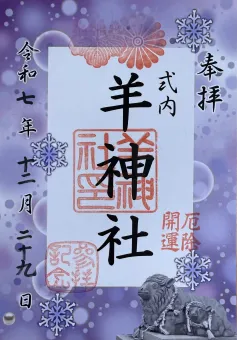 奉拝
式内
羊神社
厄除
開運
令和七年十二月二十九日
参拝
記念